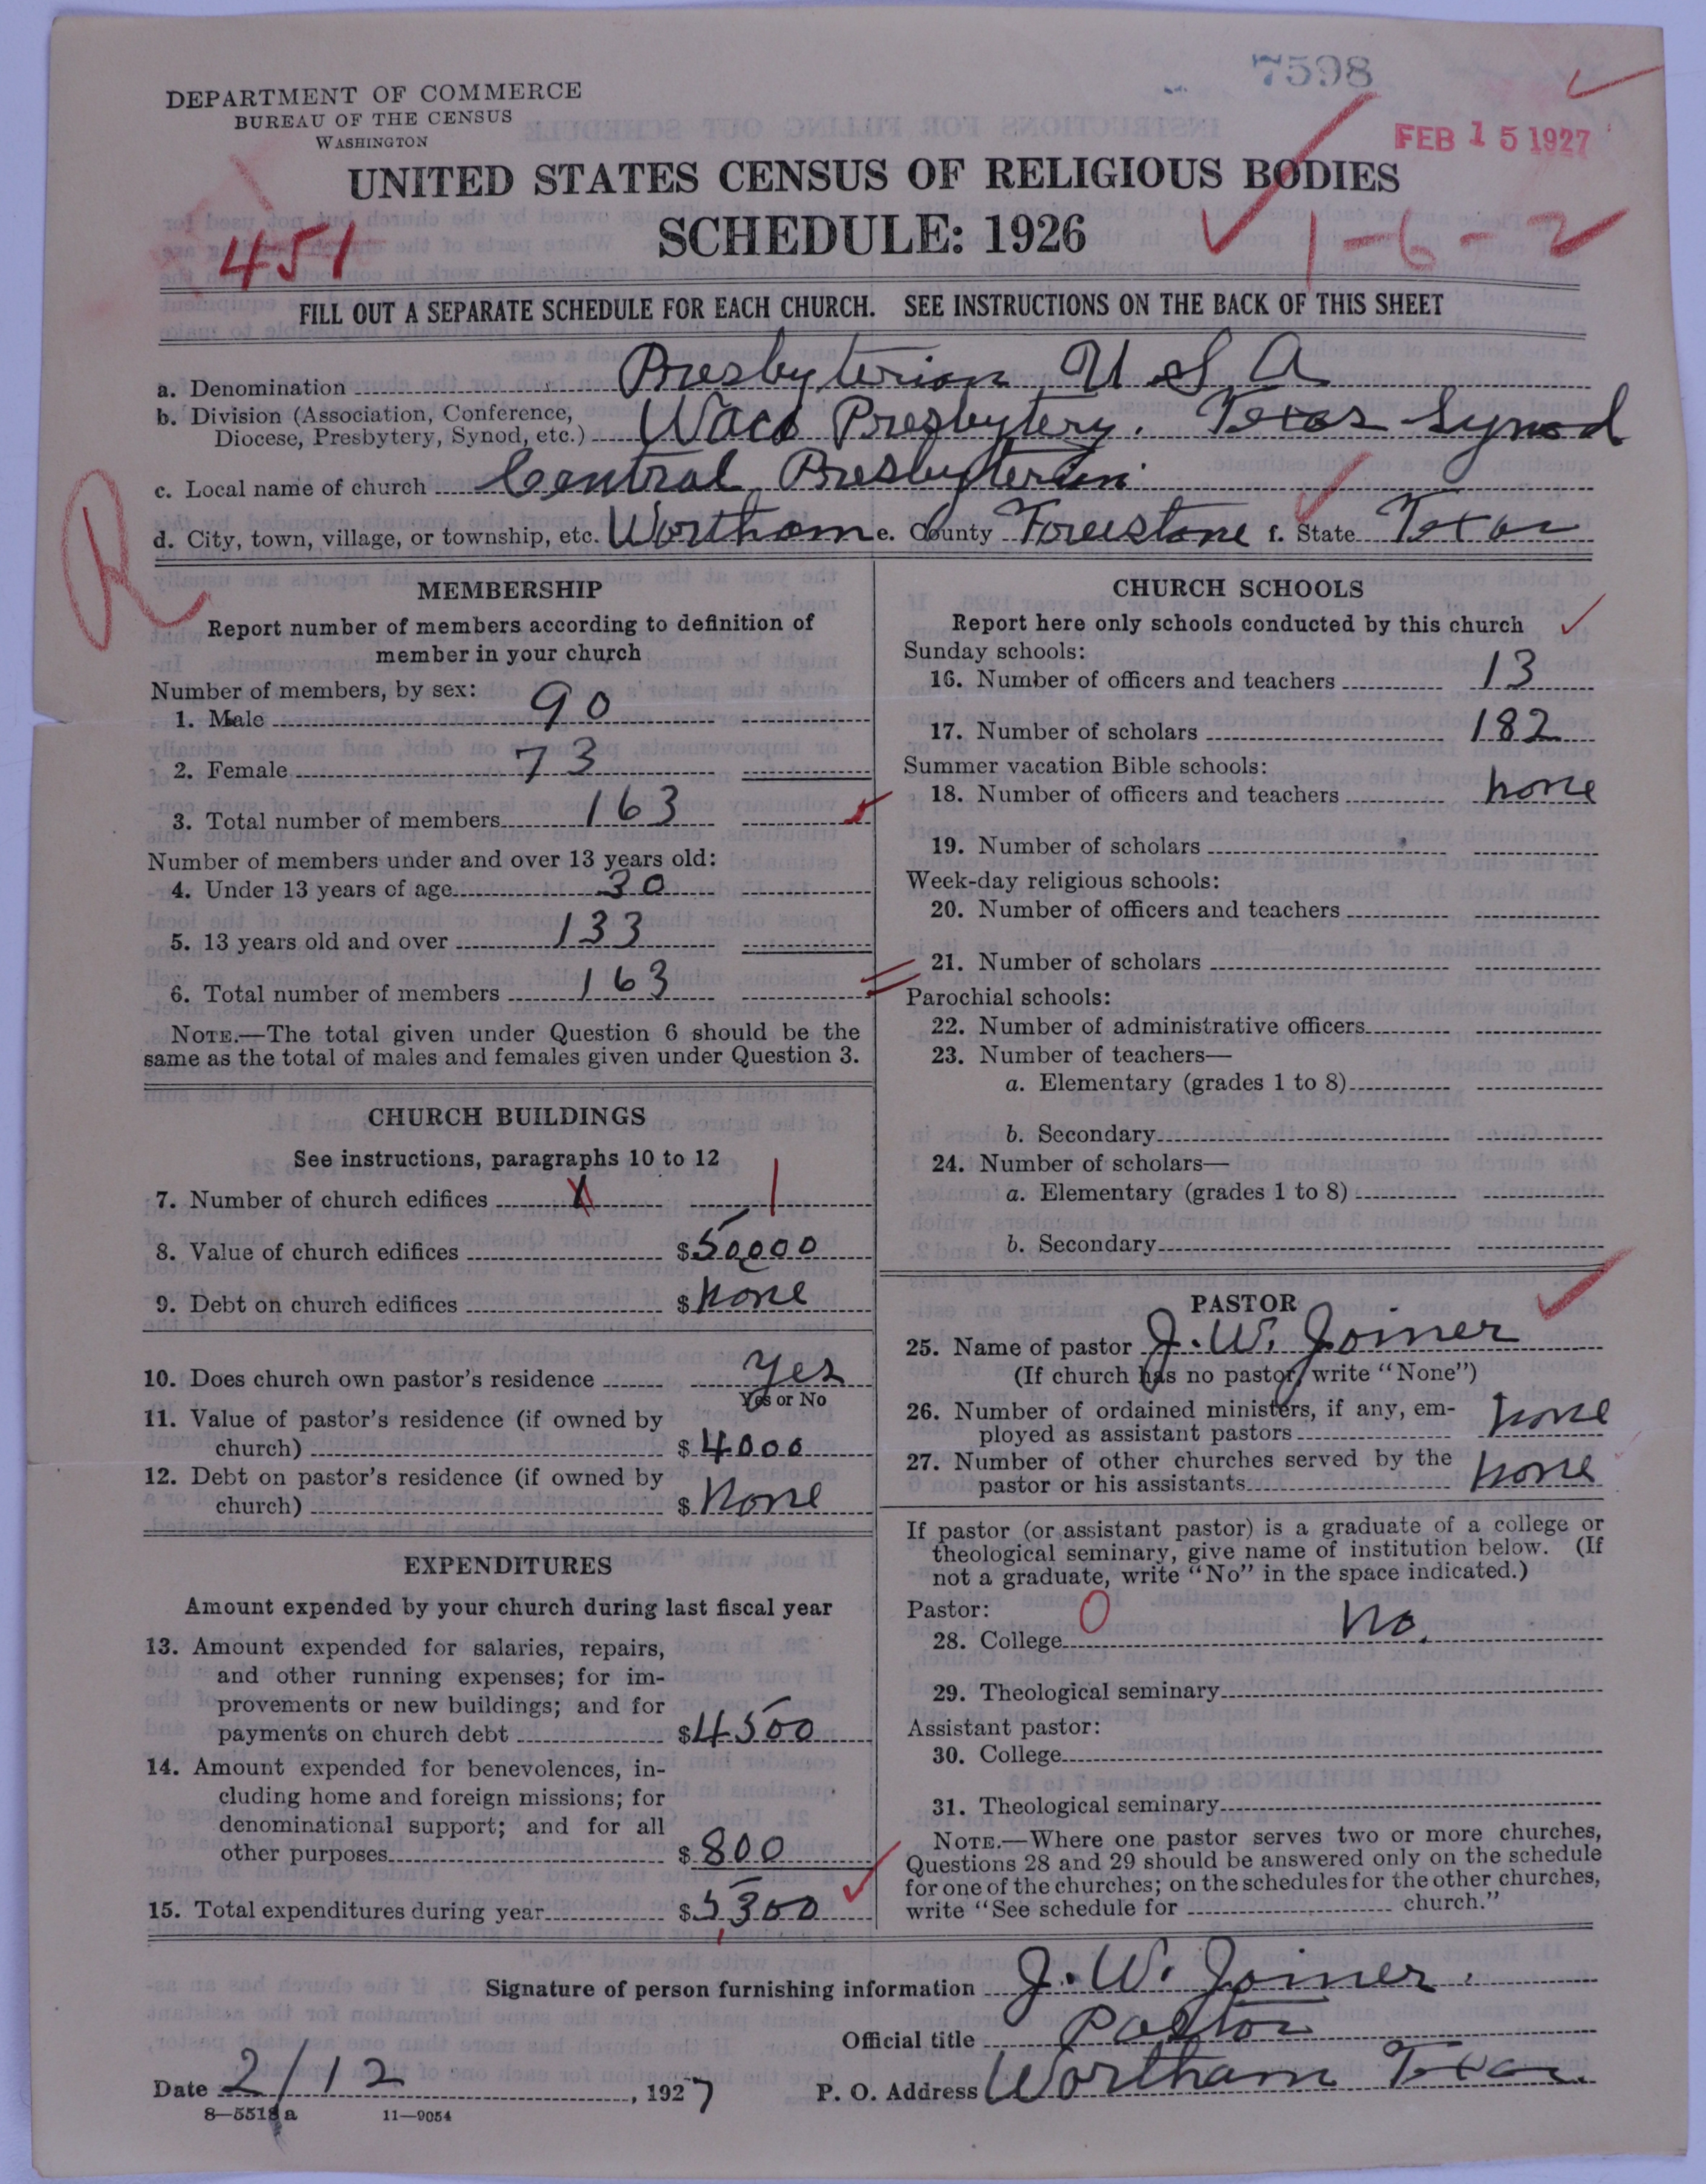 7598
DEPARTMENT OF COMMERCE
BUREAU OF THE CENSUS
WASHINGTON
FEB 15 1927
UNITED STATES CENSUS OF RELIGIOUS BODIES
SCHEDULE: 1926
451
1-6-2
FILL OUT A SEPARATE SCHEDULE FOR EACH CHURCH. SEE INSTRUCTIONS ON THE BACK OF THIS SHEET
a. Denomination Presbyterian U S A
b. Division (Association, Conference,
Diocese, Presbytery, Synod, etc.) Waco Presbytery. Texas Synod
c. Local name of church Central Presbyterian
d. City, town, village, or township, etc. Wortham e. County Freestone f. State Texas
R
MEMBERSHIP
Report number of members according to definition of
member in your church
Number of members, by sex:
1. Male 90
2. Female 73
3. Total number of members 163
Number of members under and over 13 years old:
4. Under 13 years of age 30
5. 13 years old and over 133
6. Total number of members 163
NOTE.—The total given under Question 6 should be the
same as the total of males and females given under Question 3.
CHURCH BUILDINGS
See instructions, paragraphs 10 to 12
7. Number of church edifices 1 1
8. Value of church edifices $50000
9. Debt on church edifices $none
10. Does church own pastor's residence yes
Yes or No
11. Value of pastor's residence (if owned by
church) $4000
12. Debt on pastor's residence (if owned by
church) $none
EXPENDITURES
Amount expended by your church during last fiscal year
13. Amount expended for salaries, repairs,
and other running expenses; for im-
provements or new buildings; and for
payments on church debt $4500
14. Amount expended for benevolences, in-
cluding home and foreign missions; for
denominational support; and for all
other purposes $800
15. Total expenditures during year $5,300
CHURCH SCHOOLS
Report here only schools conducted by this church
Sunday schools:
16. Number of officers and teachers 13
17. Number of scholars 182
Summer vacation Bible schools:
18. Number of officers and teachers none
19. Number of scholars
Week-day religious schools:
20. Number of officers and teachers
21. Number of scholars
Parochial schools:
22. Number of administrative officers
23. Number of teachers—
a. Elementary (grades 1 to 8)
b. Secondary
24. Number of scholars—
a. Elementary (grades 1 to 8)
b. Secondary
PASTOR
25. Name of pastor J. W. Joiner
(If church has no pastor, write "None")
26. Number of ordained ministers, if any, em-
ployed as assistant pastors none
27. Number of other churches served by the
pastor or his assistants none
If pastor (or assistant pastor) is a graduate of a college or
theological seminary, give name of institution below. (If
not a graduate, write "No" in the space indicated.)
Pastor: 0
28. College No.
29. Theological seminary
Assistant pastor:
30. College
31. Theological seminary
NOTE.—Where one pastor serves two or more churches,
Questions 28 and 29 should be answered only on the schedule
for one of the churches; on the schedules for the other churches,
write "See schedule for church."
Signature of person furnishing information J. W. Joiner.
Official title Pastor
Date 2/12, 1927 P. O. Address Wortham Texas.
8—5518a 11—9054